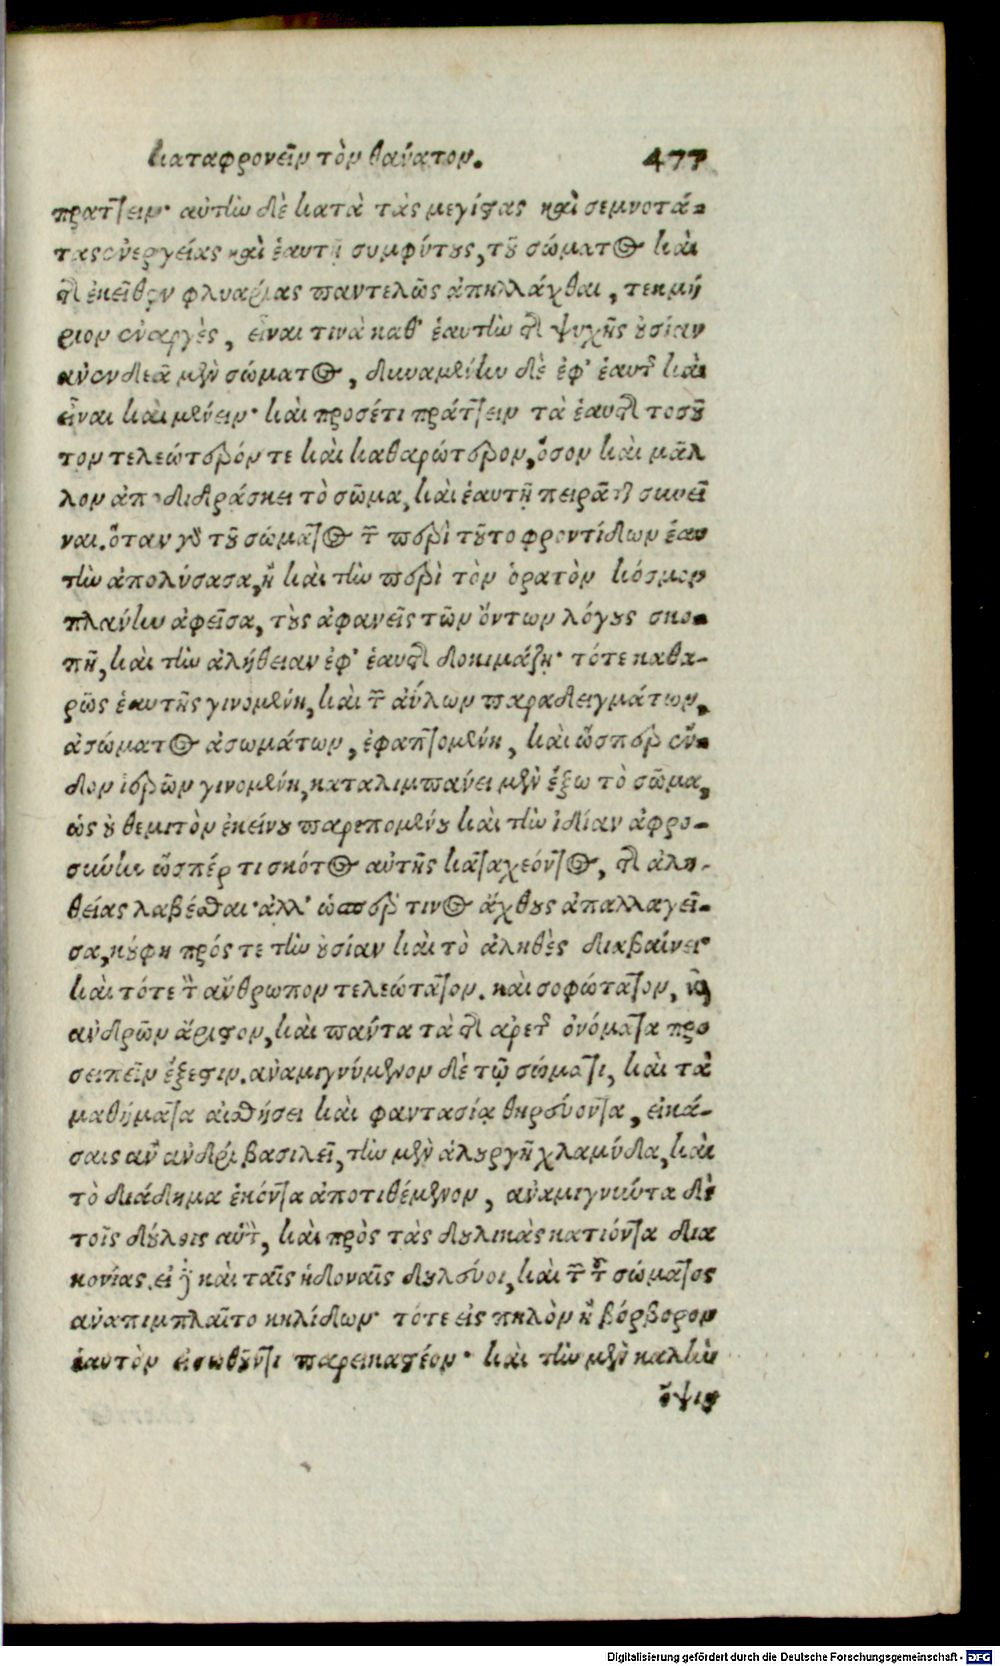 καταφρονεῖν τὸν θάνατον. 477
πράττειν· αὐτὴν δὲ κατὰ τὰς μεγίστας καὶ σεμνοτά-
τας ἐνεργείας καὶ ἑαυτῇ συμφύτους, τοῦ σώματος καὶ
τῆς ἐκεῖθεν φλυαρίας παντελῶς ἀπηλλάχθαι, τεκμή
ριον ἐναργὲς, εἶναι τινὰ καθ' ἑαυτὴν τῆς ψυχῆς οὐσίαν
ἀνενδεᾶ μὲν σώματος, δυναμένην δὲ ἐφ' ἑαυτῆς καὶ
εἶναι καὶ μένειν· καὶ προσέτι πράττειν τὰ ἑαυτῆς τοσοῦ
τον τελεώτερόν τε καὶ καθαρώτερον, ὅσον καὶ μᾶλ
λον ἀποδιδράσκει τὸ σῶμα, καὶ ἑαυτῇ πειρᾶται συνεῖ
ναι. ὅταν γὰρ τοῦ σώματος τῶν περὶ τοῦτο φροντίδων ἑαυ
τὴν ἀπολύσασα, ἢ καὶ τὴν περὶ τὸν ὁρατὸν κόσμον
πλάνην ἀφεῖσα, τοὺς ἀφανεῖς τῶν ὄντων λόγους σκο-
πῇ, καὶ τὴν ἀλήθειαν ἐφ' ἑαυτῆς δοκιμάζῃ· τότε καθα-
ρῶς ἑαυτῆς γινομένη, καὶ τῶν ἀΰλων παραδειγμάτων,
ἀσώματος ἀσωμάτων, ἐφαπτομένη, καὶ ὥσπερ ἔν-
δον ἱερῶν γινομένη, καταλιμπάνει μὲν ἔξω τὸ σῶμα,
ὡς οὐ θεμιτὸν ἐκείνου παρεπομένου καὶ τὴν ἰδίαν ἀφρο-
σύνην ὥσπέρ τι σκότος αὐτῆς καταχέοντος, τῆς ἀλη-
θείας λαβέσθαι· ἀλλ' ὥσπερ τινος ἄχθους ἀπαλλαγεῖ-
σα, κούφη πρός τε τὴν οὐσίαν καὶ τὸ ἀληθὲς διαβαίνει·
καὶ τότε τὸν ἄνθρωπον τελεώτατον. καὶ σοφώτατον, καὶ
ἀνδρῶν ἄριστον, καὶ πάντα τὰ τῆς ἀρετῆς ὀνόματα προ
σειπεῖν ἔξεστιν. ἀναμιγνύμενον δὲ τῷ σώματι, καὶ τὰ
μαθήματα αἰσθήσει καὶ φαντασίᾳ θηρεύοντα, εἰκά-
σαις ἂν ἀνδρὶ βασιλεῖ, τὴν μὲν ἁλουργῆ χλαμύδα, καὶ
τὸ διάδημα ἑκόντα ἀποτιθέμενον, ἀναμιγνύντα δὲ
τοῖς δούλοις αὑτὸν, καὶ πρὸς τὰς δουλικὰς κατιόντα δια
κονίας. εἰ δὲ καὶ ταῖς ἡδοναῖς δουλεύοι, καὶ τῶν τοῦ σώματος
ἀναπιμπλαῖτο κηλίδων· τότε εἰς πηλὸν ἢ βόρβορον
ἑαυτὸν εἰσωθοῦντι παρεικαστέον· καὶ τὴν μὲν καλὴν
ὄψιν
Digitalisierung gefördert durch die Deutsche Forschungsgemeinschaft - DFG